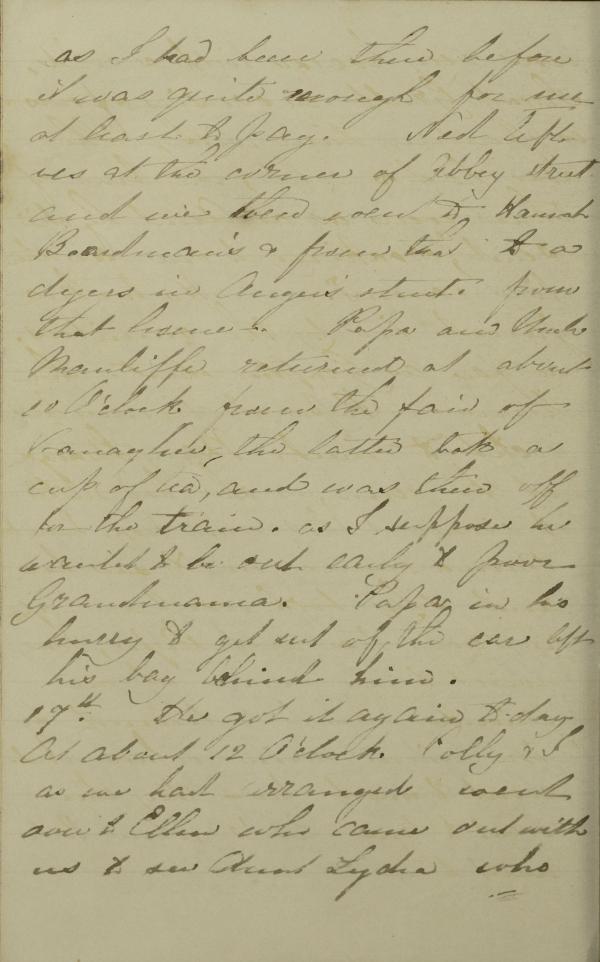 as I had been there before
it was quite enough for me
at least to pay. Ned left
us at the corner of Abbey street
and we then went to Hannah
Boardman's & from that to a
dyers in Angeis street. from
that home. Papa and Uncle
Manliffe returned at about
10 O'clock from the fair of
Banagher, the latter took a
cup of tea, and was then off
to the train. as I suppose he
wanted to be out early to poor
Grandmama. Papa in his
hurry to get out of the car left
his bag behind him.
17th. He got it again to-day
At about 12 O'clock. Polly & I
as we had arranged went
over to Ellen who came out with
us to see Aunt Lydia who